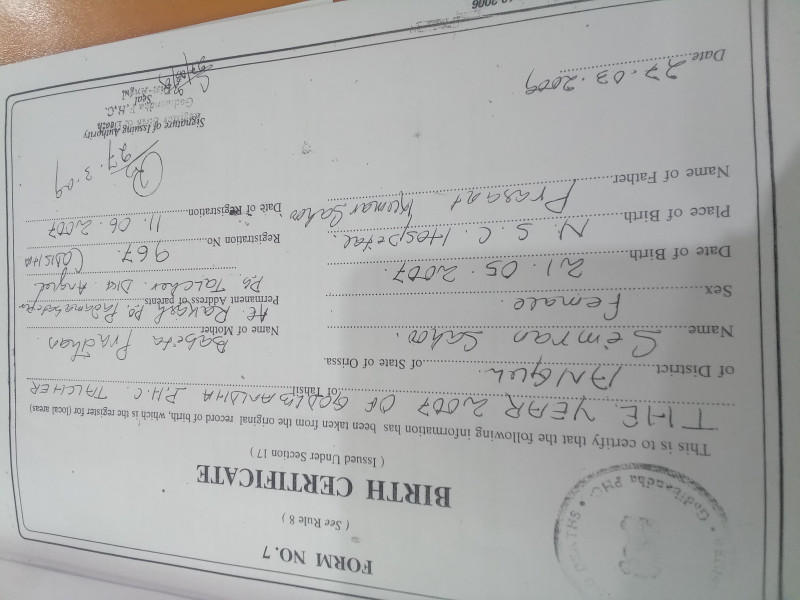 FORM NO. 7
( See Rule 8 )
BIRTH CERTIFICATE
( Issued Under Section 17 )
This is to certify that the following information has been taken from the original record of birth, which is the register for (local areas)
THE YEAR 2007 OF GODIBANDHA P.H.C. of Tahsil TALCHER
of District ANGUL of State of Orissa.
Name Simran Sahoo.
Name of Mother Babita Pradhan
Sex Female
Permanent Address of parents At. Po.
Po. Talcher Dist Angul
Date of Birth 21.05.2007.
Registration No. 967.
Place of Birth N.S.C. Hospital.
Date of Registration 11.06.2007
Name of Father Prasant Kumar Sahoo
27.3.09
Signature of Issuing Authority
Seal
Date 27.03.2009
Godibandha PHC